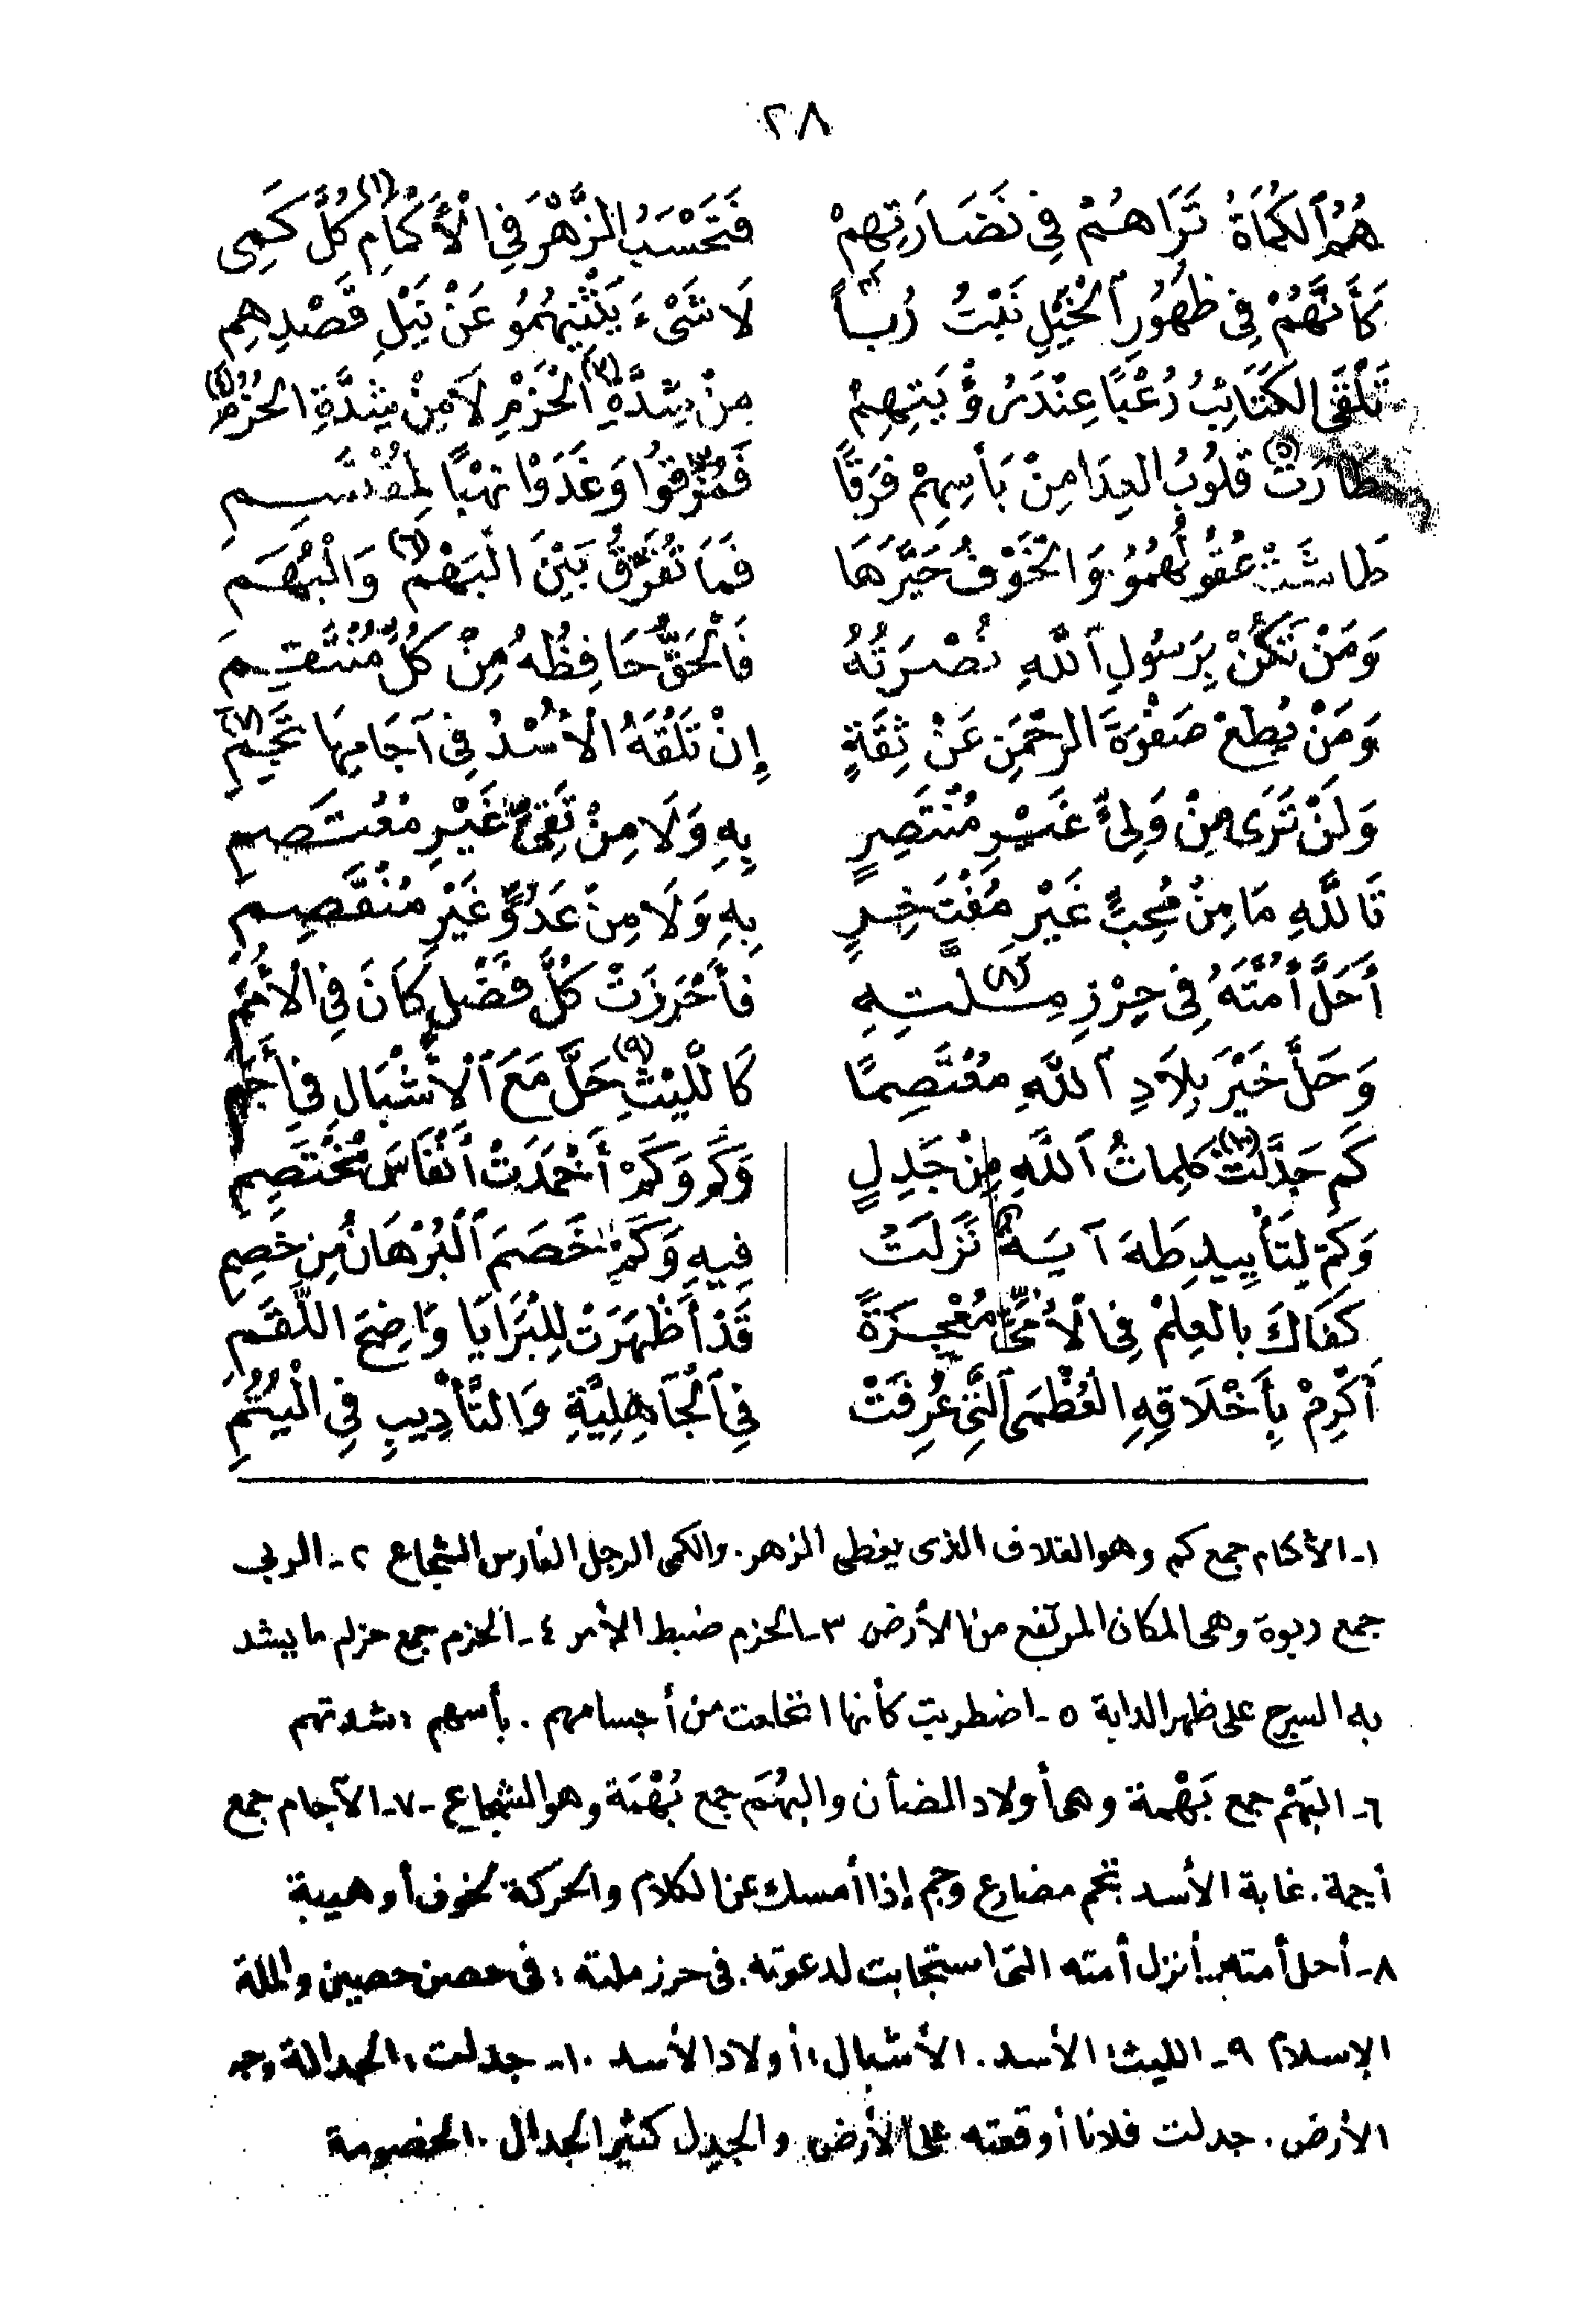 ٢٨
هُمُ الكُمَاةُ تَرَاهُمْ فِى نَضَارَتِهِمْ فَتَحْسَبُ الزَّهْرَ فِى الْأَكْمَامِ (١) كُلَّ كَمِى
كَأَنَّهُمْ فِى ظُهُورِ الْخَيْلِ نَبْتُ رُبًا (٢) لَا شَىْءَ يَثْنِيهُمُو عَنْ نَيْلِ قَصْدِهِمِ
تَلْقَى الكَتَائِبُ رُعْبًا عِنْدَ رُؤْيَتِهِمْ مِنْ شِدَّةِ الْحَزْمِ (٣) لَا مِنْ شِدَّةِ الحُزُمِ (٤)
طَارَتْ (٥) قُلُوبُ العِدَا مِنْ بَأسِهِمْ فَرَقًا فَمُزِّقُوا وَغَدَوْا نَهْبًا لِمُقْتَسِمِ
طَاشَتْ عُقُولُهُمُو وَالخَوْفُ حَيَّرَهَا فَمَا تُفَرِّقُ بَيْنَ الْبَهْمِ (٦) وَالْبُهَمِ
وَمَنْ تَكُنْ بِرَسُولِ اللَّهِ نُصْرَتُهُ فَالْحَقُّ حَافِظُهُ مِنْ كُلِّ مُنْتَقِمِ
وَمَنْ يُطِعْ صَفْوَةَ الرحْمَنِ عَنْ ثِقَةٍ إِنْ تَلْقَهُ الْأُسْدُ فِى آجَامِهَا تَجِمِ (٧)
وَلَنْ تَرَى مِنْ وَلِىٍّ غَيْرِ مُنْتَصِرٍ بِهِ وَلَا مِنْ تَقِىٍّ غَيْرِ مُعْتَصِمِ
تَاللَّهِ مَا مِنْ مُحِبٍّ غَيْرِ مُفْتَخِرٍ بِهِ وَلَا مِنْ عَدُوٍّ غَيْرِ مُنْقَصِمِ
أَحَلَّ أُمَّتَهُ فِى حِرْزِ مِلَّتِهِ (٨) فَأَحْرَزَتْ كُلَّ فَضْلٍ كَانَ فِى الْأُمَمِ
وَحَلَّ خَيْرَ بِلَادِ اللَّهِ مُعْتَصِمًا كَاللَّيْثِ (٩) حَلَّ مَعَ الْأَشْبَالِ فِى أَجَمِ
كَم جَدَّلَتْ (١٠) كَلِمَاتُ اللَّهِ مِنْ جَدِلٍ وَكَمْ وَكَمْ أَخْمَدَتْ أَنْفَاسَ مُخْتَصِمِ
وَكَمْ لِتَأْيِيدِ طَهَ آيَةٌ نَزَلَتْ فِيهِ وَكَمْ خَصَمَ الْبُرْهَانُ مِن خَصِمِ
كَفَاكَ بِالعِلْمِ فِى الْأُمِّىِّ مُعْجِزَةً قَدْ أَظْهَرَتْ لِلْبَرَايَا وَاضِحَ اللَّقَمِ
أَكْرِمْ بِأَخْلَاقِهِ الْعُظْمَى الَّتِى عُرِفَتْ فِى الْجَاهِلِيَّةِ وَالتَّأْدِيبِ فِى الْيُتُمِ
١ـ الأكمام جمع كم وهو الغلاف الذى يغطى الزهر. والكمى الرجل الفارس الشجاع ٢ـ الربى
جمع ربوة وهى المكان المرتفع من الأرض ٣ـ الحزم ضبط الأمر ٤ـ الحزم جمع حزام ما يشد
به السرج على ظهر الدابة ٥ـ اضطربت كأنها انخلعت من أجسامهم . بأسهم : شدتهم
٦ـ البَهْم جمع بَهْمة وهى أولاد الضأن والبُهَم جمع بُهْمَة وهو الشجاع ـ٧ـ الآجام جمع
أجمة . غابة الأسد تجم مضارع وجم إذا أمسك عن الكلام والحركة لخوف أو هيبة
٨ـ أحل أمته : أنزل أمته التى استجابت لدعوته . فى حرز ملته : فى حصن حصين والملة
الإسلام ٩ـ الليث : الأسد . الأشبال : أولاد الأسد ١٠ـ جدلت : الجدالة وجه
الأرض . جدلت فلانا أوقعته على الأرض والجدل كثير الجدال . الخصومة